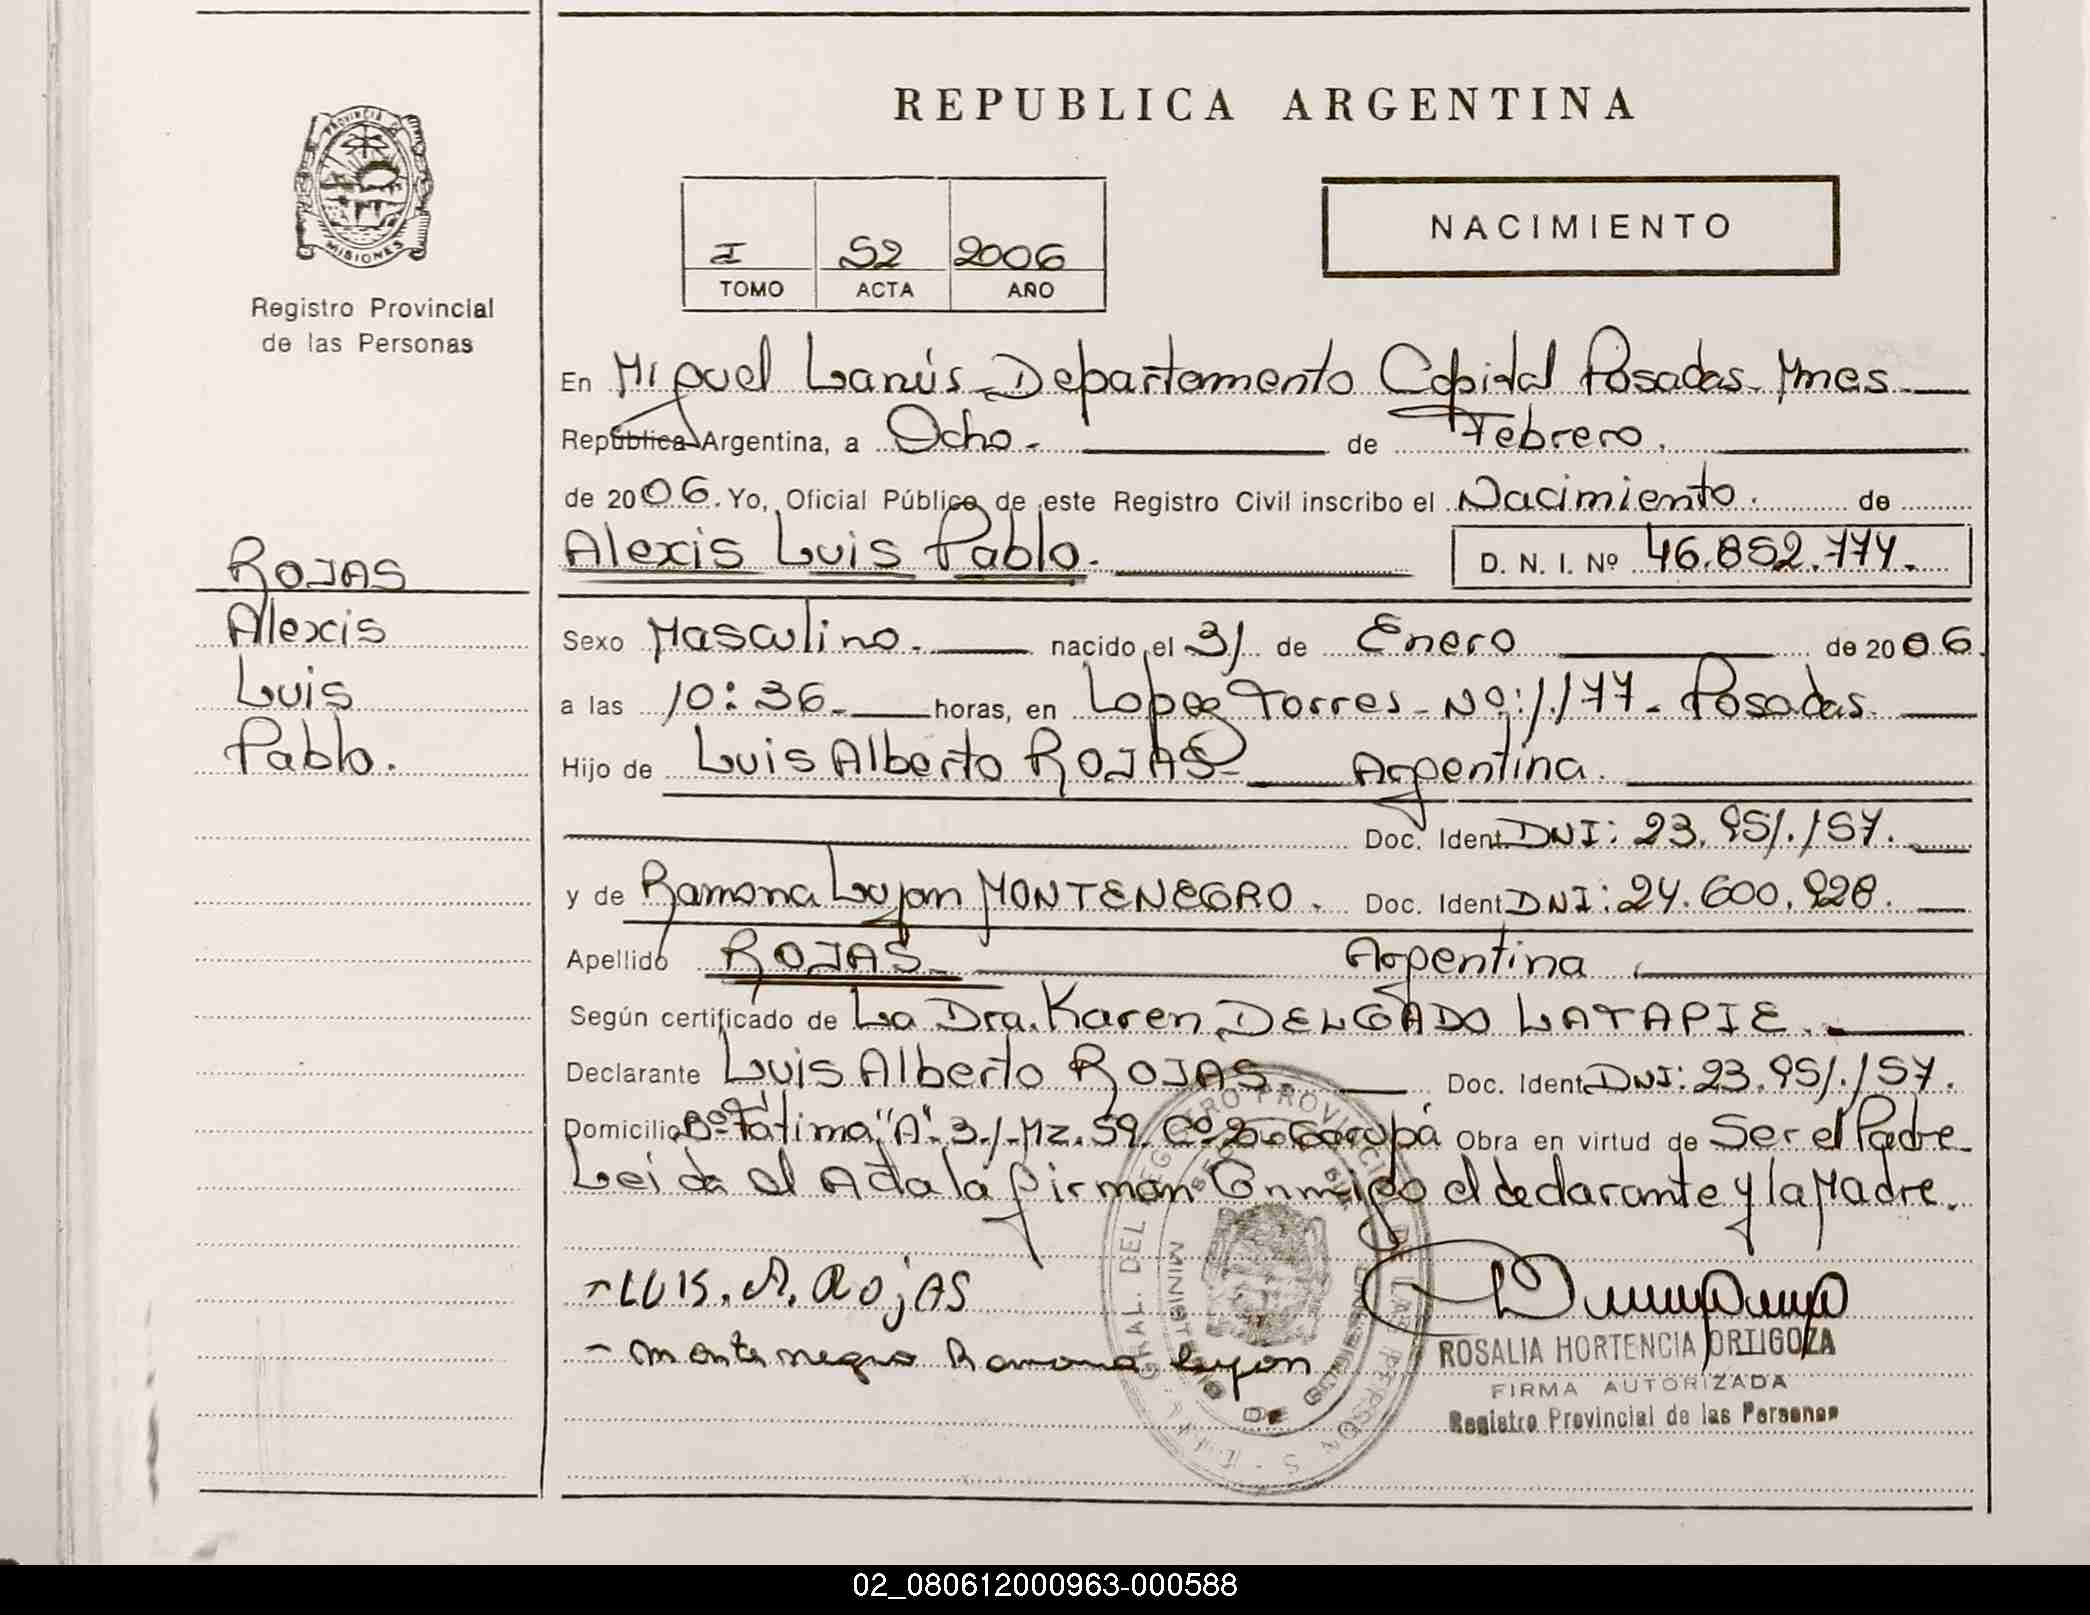 REPUBLICA ARGENTINA
PROVINCIA DE
MISIONES
Registro Provincial
de las Personas
NACIMIENTO
I 52 2006
TOMO ACTA AÑO
En Miguel Lanús - Departamento Capital Posadas - Mnes
República Argentina, a Ocho.- de Febrero.
de 2006. Yo, Oficial Público de este Registro Civil inscribo el Nacimiento. de
Alexis Luis Pablo. D. N. I. Nº 46.852.777.
ROJAS
Alexis
Luis
Pablo.
Sexo Masculino. nacido el 31 de Enero de 2006.
a las 10:36 - horas, en Lopez Torres - Nº: 1.177 - Posadas.
Hijo de Luis Alberto ROJAS - Argentina.
Doc. Ident. DNI: 23.951.157.
y de Ramona Lujan MONTENEGRO. Doc. Ident. DNI: 24.600.928.
Apellido ROJAS - Argentina
Según certificado de La Dra. Karen DELGADO LATAPIE.
Declarante Luis Alberto ROJAS. Doc. Ident. DNI: 23.951.157.
Domicilio Bº Fátima "A" 31 - Mz. 59. Cº 2 - Garupá Obra en virtud de Ser el Padre
Leida el Acta la firman Conmigo el declarante y la Madre.
- LUIS. A. Rojas
- montenegro Ramona lujan
ROSALIA HORTENCIA ORTIGOZA
FIRMA AUTORIZADA
Registro Provincial de las Personas
02_080612000963-000588